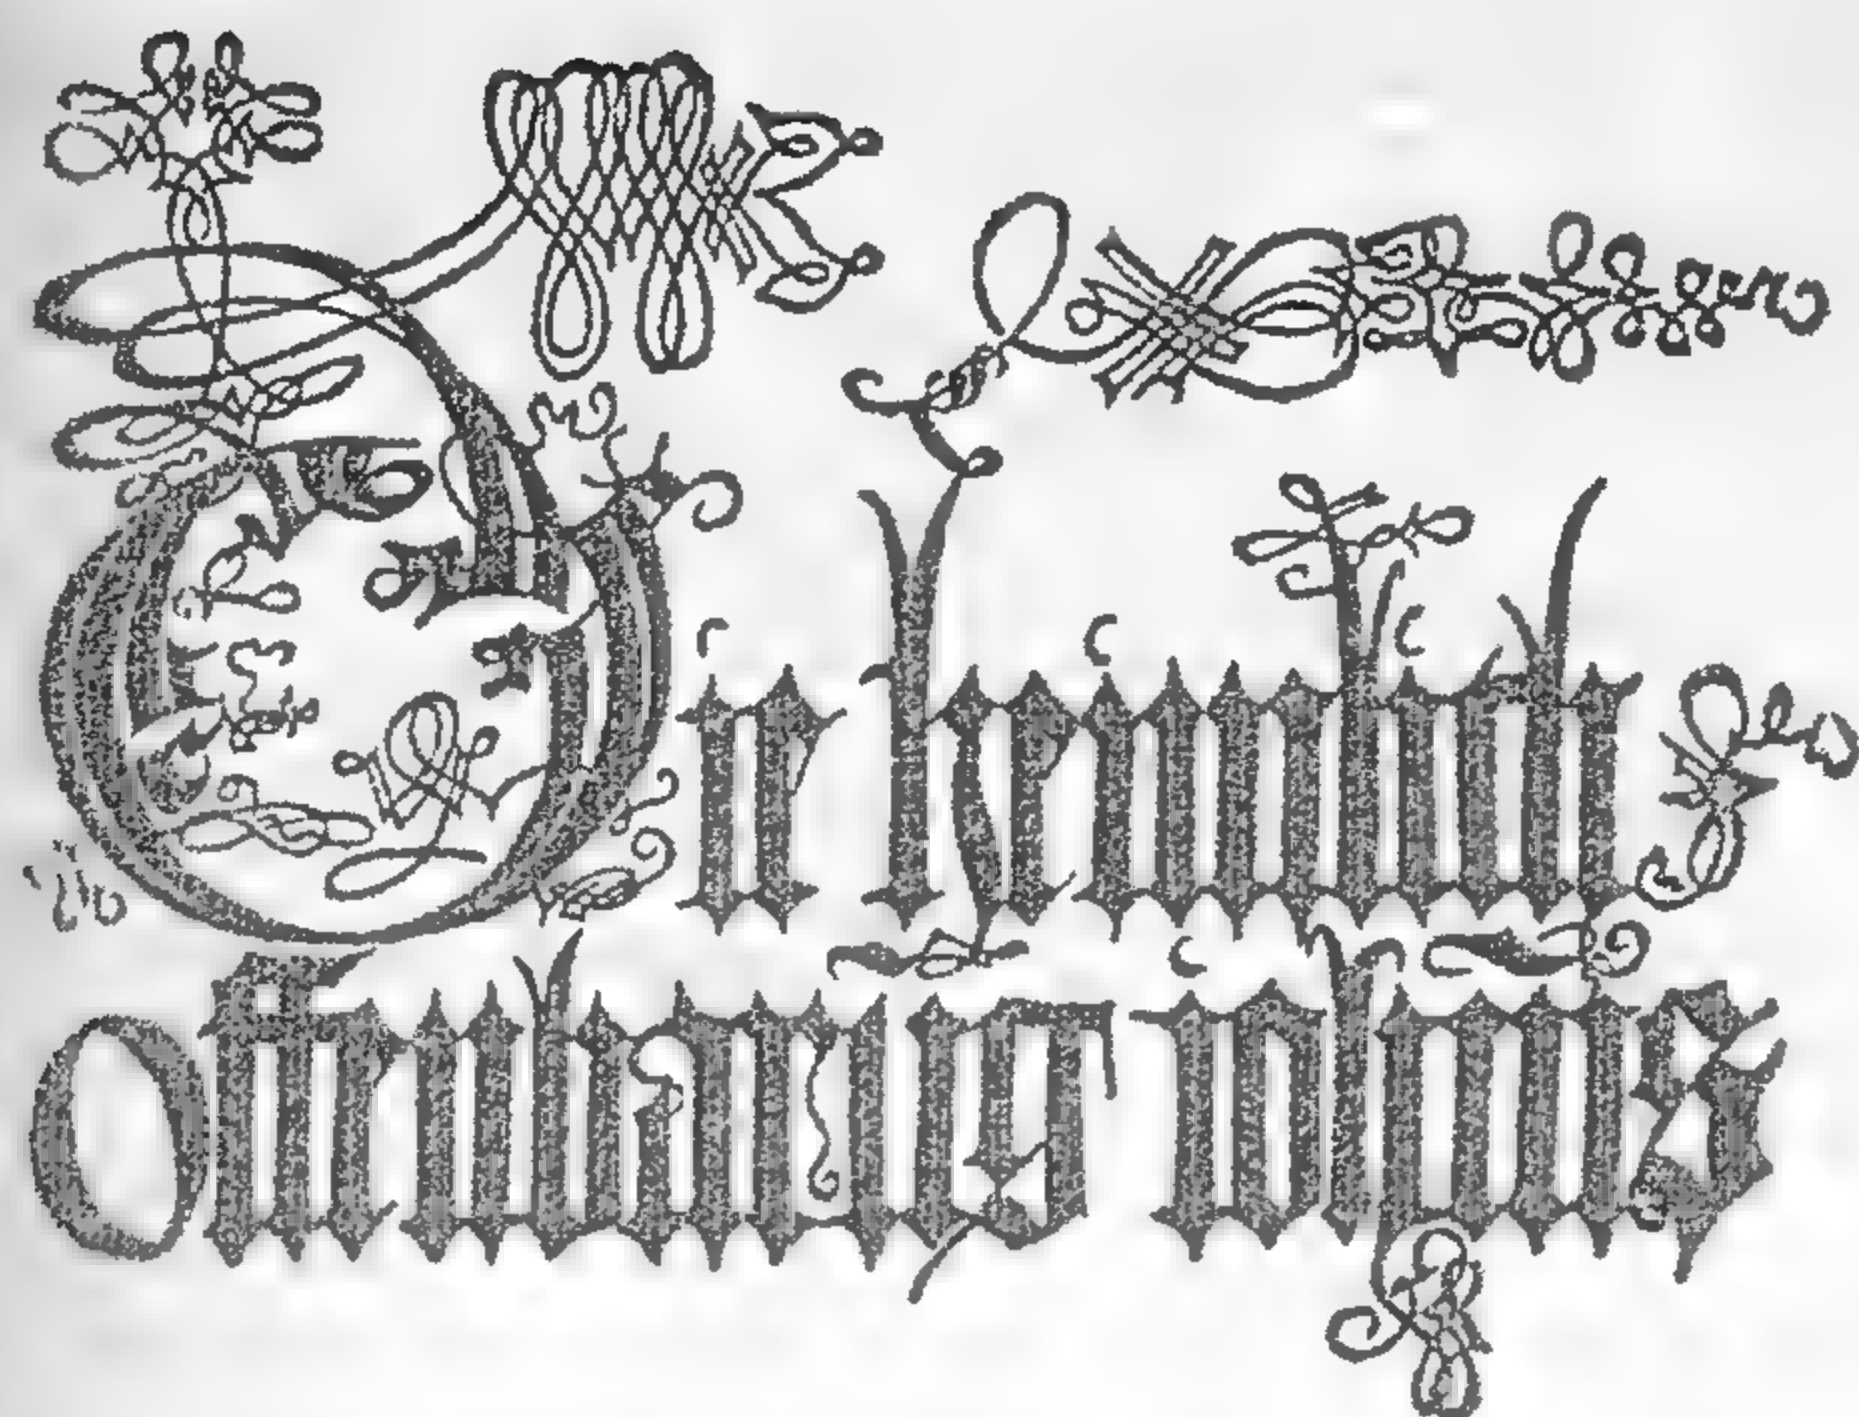 Die heimlich
offenbarung iohnis